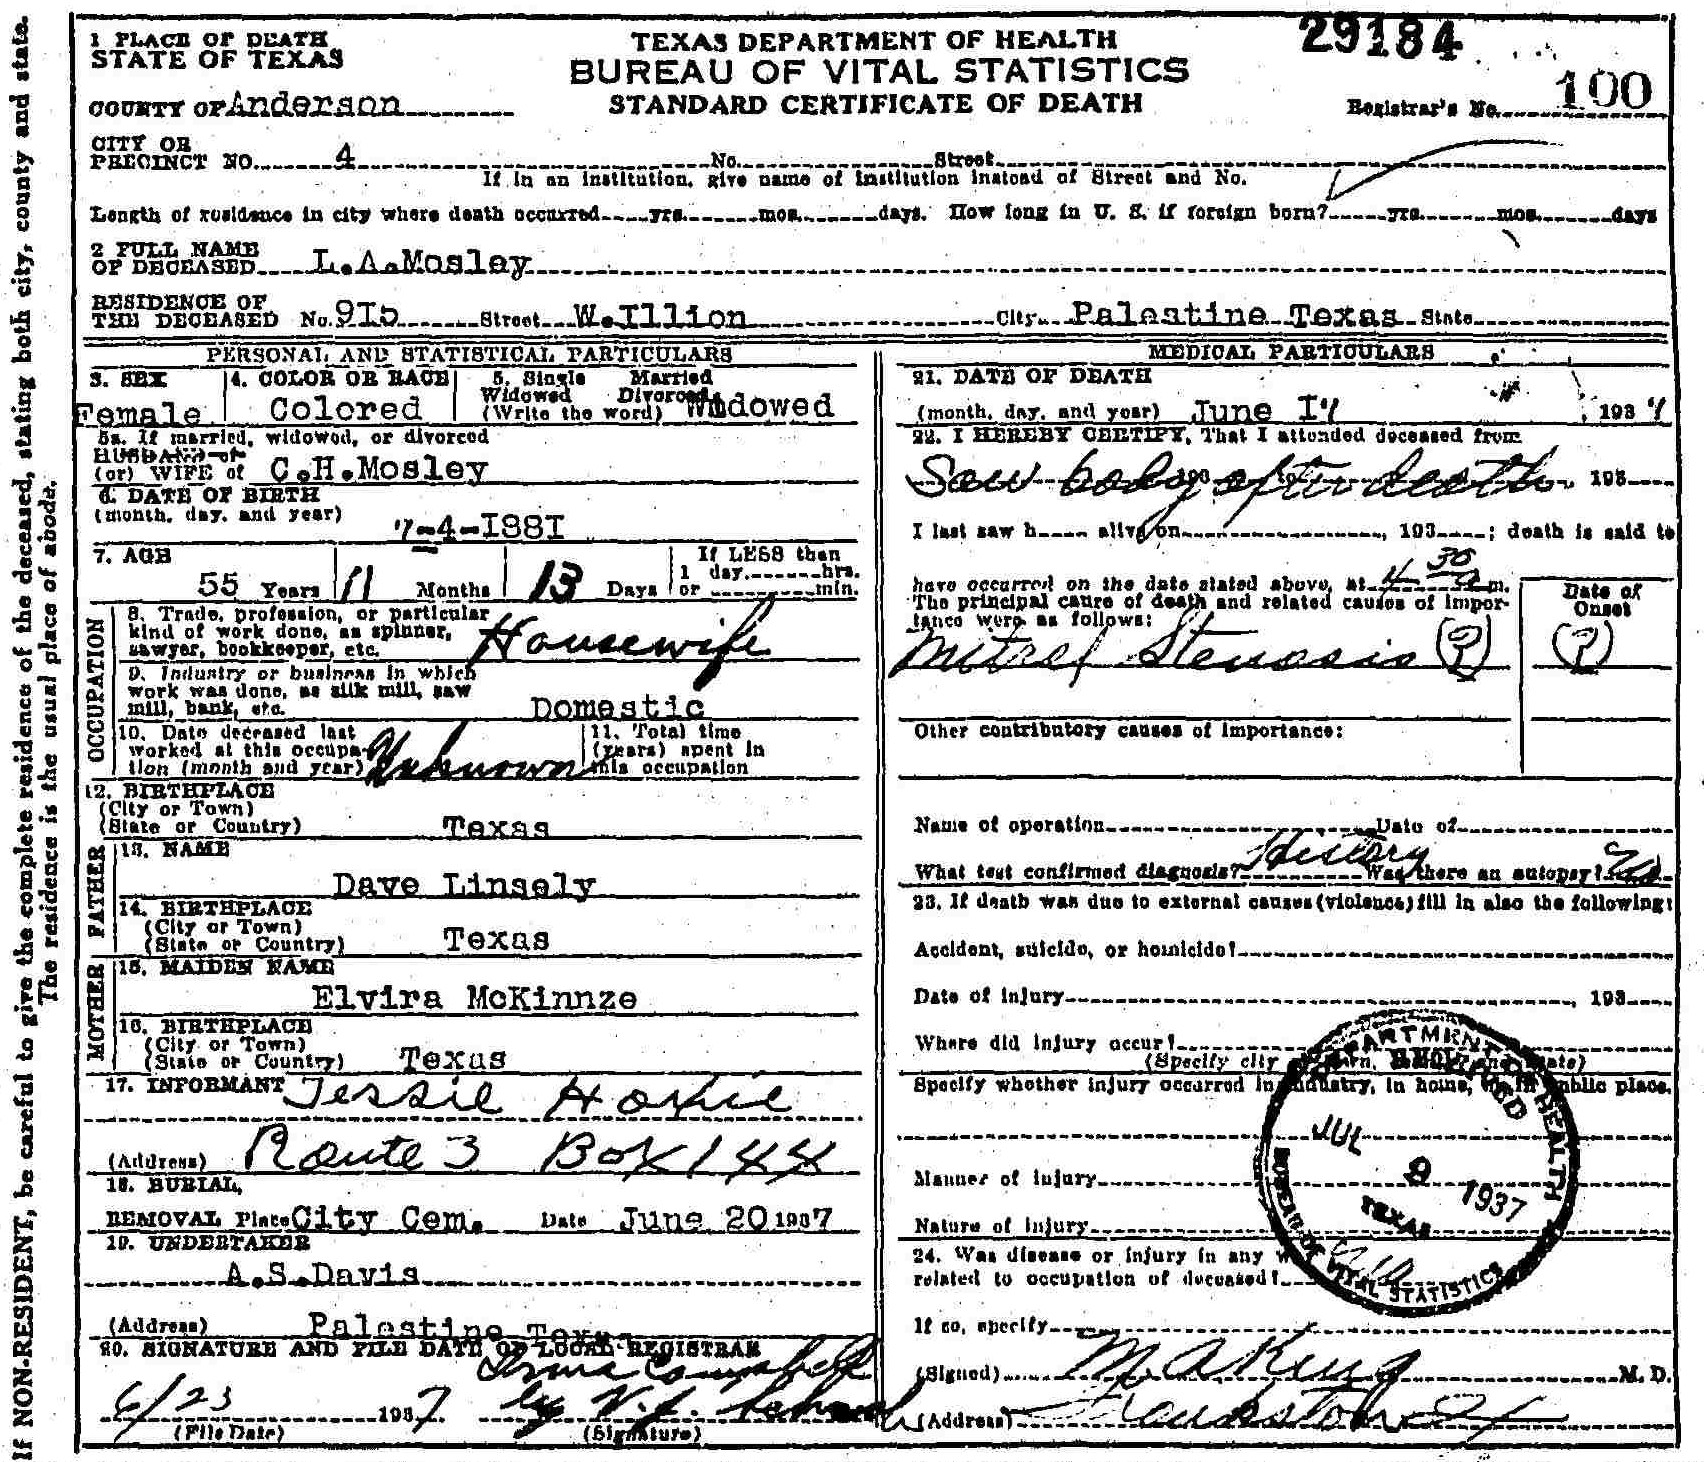 If NON-RESIDENT, be careful to give the complete residence of the deceased, stating both city, county and state.
The residence is the usual place of abode.
29184
1 PLACE OF DEATH
STATE OF TEXAS
COUNTY OF Anderson
TEXAS DEPARTMENT OF HEALTH
BUREAU OF VITAL STATISTICS
STANDARD CERTIFICATE OF DEATH
Registrar's No. 100
CITY OR
PRECINCT NO. 4 No. Street
If in an institution, give name of institution instead of Street and No.
Length of residence in city where death occurred yrs. mos. days. How long in U. S. if foreign born? yrs. mos. days
2 FULL NAME
OF DECEASED L.A.Mosley
RESIDENCE OF
THE DECEASED No. 9I5 Street W.Illion City Palestine Texas State
PERSONAL AND STATISTICAL PARTICULARS
3. SEX
Female
4. COLOR OR RACE
Colored
5. Single Married
Widowed Divorced
(Write the word) Widowed
5a. If married, widowed, or divorced
HUSBAND of
(or) WIFE of C.H.Mosley
6. DATE OF BIRTH
(month, day, and year) 7-4-I88I
7. AGE
55 Years 11 Months 13 Days
If LESS than
1 day, hrs.
or min.
OCCUPATION
8. Trade, profession, or particular
kind of work done, as spinner,
sawyer, bookkeeper, etc. Housewife
9. Industry or business in which
work was done, as silk mill, saw
mill, bank, etc. Domestic
10. Date deceased last
worked at this occupa-
tion (month and year) Unknown
11. Total time
(years) spent in
this occupation
12. BIRTHPLACE
(City or Town)
(State or Country) Texas
FATHER
13. NAME
Dave Linsely
14. BIRTHPLACE
(City or Town)
(State or Country) Texas
MOTHER
15. MAIDEN NAME
Elvira McKinnze
16. BIRTHPLACE
(City or Town)
(State or Country) Texas
17. INFORMANT Jessie
(Address) Route 3 Box 144
18. BURIAL,
REMOVAL Place City Cem. Date June 20 1937
19. UNDERTAKER
A.S.Davis
(Address) Palestine Texas
20. SIGNATURE AND FILE DATE OF LOCAL REGISTRAR
Irma Campbell
6/23 1937 by V.J.
(File Date) (Signature)
MEDICAL PARTICULARS
21. DATE OF DEATH
(month, day, and year) June I7, 1937
22. I HEREBY CERTIFY, That I attended deceased from
Saw body after death, 193
I last saw h alive on , 193 ; death is said to
have occurred on the date stated above, at 4 30 a m.
The principal cause of death and related causes of impor-
tance were as follows:
Mitral Stenosis (?)
Date of
Onset
(?)
Other contributory causes of importance:
Name of operation Date of
What test confirmed diagnosis? History Was there an autopsy? No
23. If death was due to external causes (violence) fill in also the following:
Accident, suicide, or homicide?
Date of injury , 193
Where did injury occur?
(Specify city or town, county and state)
Specify whether injury occurred in industry, in home, or in public place.
Manner of injury
Nature of injury
24. Was disease or injury in any way
related to occupation of deceased?
If so, specify
(Signed) M A King M. D.
(Address)
DEPARTMENT OF HEALTH
RECEIVED
JUL 9 1937
TEXAS
BUREAU OF VITAL STATISTICS